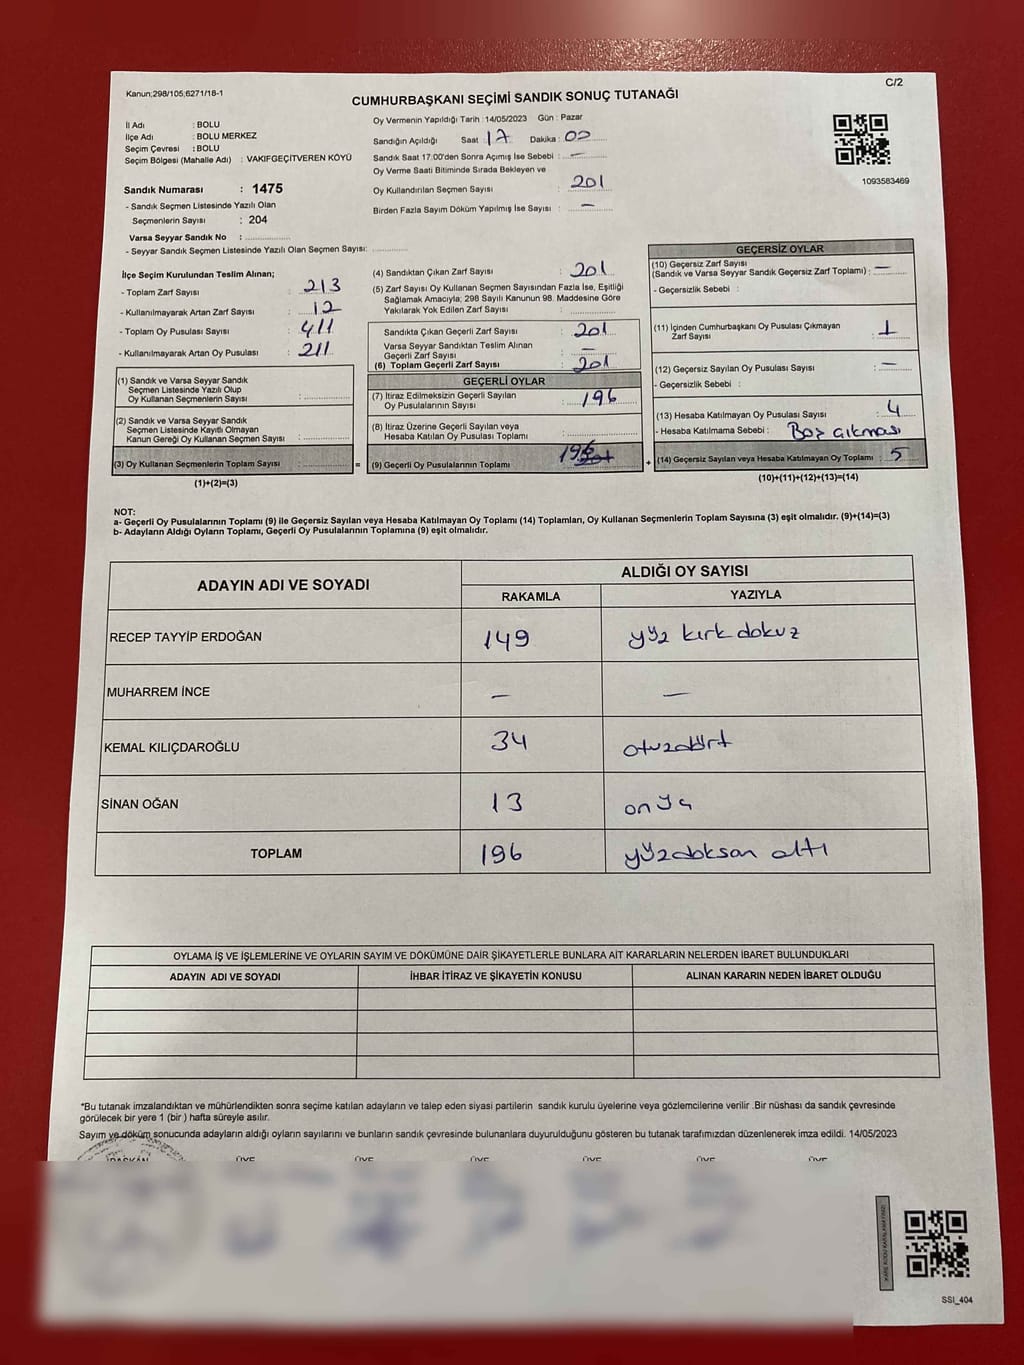 C/2
Kanun;298/105;6271/18-1
CUMHURBAŞKANI SEÇİMİ SANDIK SONUÇ TUTANAĞI
İl Adı : BOLU
İlçe Adı : BOLU MERKEZ
Seçim Çevresi : BOLU
Seçim Bölgesi (Mahalle Adı) : VAKIFGEÇİTVEREN KÖYÜ
Sandık Numarası : 1475
- Sandık Seçmen Listesinde Yazılı Olan
Seçmenlerin Sayısı : 204
Varsa Seyyar Sandık No : ..............
- Seyyar Sandık Seçmen Listesinde Yazılı Olan Seçmen Sayısı: ............
Oy Vermenin Yapıldığı Tarih : 14/05/2023 Gün : Pazar
Sandığın Açıldığı Saat 17 Dakika : 00
Sandık Saat 17:00'den Sonra Açımış İse Sebebi : —
Oy Verme Saati Bitiminde Sırada Bekleyen ve
Oy Kullandırılan Seçmen Sayısı : 201
Birden Fazla Sayım Döküm Yapılmış İse Sayısı : —
1093583469
İlçe Seçim Kurulundan Teslim Alınan;
- Toplam Zarf Sayısı : 213
- Kullanılmayarak Artan Zarf Sayısı : 12
- Toplam Oy Pusulası Sayısı : 411
- Kullanılmayarak Artan Oy Pusulası : 211
(1) Sandık ve Varsa Seyyar Sandık
Seçmen Listesinde Yazılı Olup
Oy Kullanan Seçmenlerin Sayısı : ............
(2) Sandık ve Varsa Seyyar Sandık
Seçmen Listesinde Kayıtlı Olmayan
Kanun Gereği Oy Kullanan Seçmen Sayısı : ............
(3) Oy Kullanan Seçmenlerin Toplam Sayısı : ............ =
(1)+(2)=(3)
(4) Sandıktan Çıkan Zarf Sayısı : 201
(5) Zarf Sayısı Oy Kullanan Seçmen Sayısından Fazla İse, Eşitliği
Sağlamak Amacıyla; 298 Sayılı Kanunun 98. Maddesine Göre
Yakılarak Yok Edilen Zarf Sayısı : ............
Sandıkta Çıkan Geçerli Zarf Sayısı : 201
Varsa Seyyar Sandıktan Teslim Alınan
Geçerli Zarf Sayısı : —
(6) Toplam Geçerli Zarf Sayısı : 201
GEÇERLİ OYLAR
(7) İtiraz Edilmeksizin Geçerli Sayılan
Oy Pusulalarının Sayısı : 196
(8) İtiraz Üzerine Geçerli Sayılan veya
Hesaba Katılan Oy Pusulası Toplamı : ............
(9) Geçerli Oy Pusulalarının Toplamı : 196 201 +
GEÇERSİZ OYLAR
(10) Geçersiz Zarf Sayısı
(Sandık ve Varsa Seyyar Sandık Geçersiz Zarf Toplamı) : —
- Geçersizlik Sebebi :
(11) İçinden Cumhurbaşkanı Oy Pusulası Çıkmayan
Zarf Sayısı : 1
(12) Geçersiz Sayılan Oy Pusulası Sayısı : —
- Geçersizlik Sebebi :
(13) Hesaba Katılmayan Oy Pusulası Sayısı : 4
- Hesaba Katılmama Sebebi : Boş çıkması
(14) Geçersiz Sayılan veya Hesaba Katılmayan Oy Toplamı : 5
(10)+(11)+(12)+(13)=(14)
NOT:
a- Geçerli Oy Pusulalarının Toplamı (9) ile Geçersiz Sayılan veya Hesaba Katılmayan Oy Toplamı (14) Toplamları, Oy Kullanan Seçmenlerin Toplam Sayısına (3) eşit olmalıdır. (9)+(14)=(3)
b- Adayların Aldığı Oyların Toplamı, Geçerli Oy Pusulalarının Toplamına (9) eşit olmalıdır.
ADAYIN ADI VE SOYADI ALDIĞI OY SAYISI
RAKAMLA YAZIYLA
RECEP TAYYİP ERDOĞAN 149 yüz kırk dokuz
MUHARREM İNCE — —
KEMAL KILIÇDAROĞLU 34 otuzdört
SİNAN OĞAN 13 onüç
TOPLAM 196 yüzdoksan altı
OYLAMA İŞ VE İŞLEMLERİNE VE OYLARIN SAYIM VE DÖKÜMÜNE DAİR ŞİKAYETLERLE BUNLARA AİT KARARLARIN NELERDEN İBARET BULUNDUKLARI
ADAYIN ADI VE SOYADI İHBAR İTİRAZ VE ŞİKAYETİN KONUSU ALINAN KARARIN NEDEN İBARET OLDUĞU
*Bu tutanak imzalandıktan ve mühürlendikten sonra seçime katılan adayların ve talep eden siyasi partilerin sandık kurulu üyelerine veya gözlemcilerine verilir .Bir nüshası da sandık çevresinde
görülecek bir yere 1 (bir ) hafta süreyle asılır.
Sayım ve döküm sonucunda adayların aldığı oyların sayılarını ve bunların sandık çevresinde bulunanlara duyurulduğunu gösteren bu tutanak tarafımızdan düzenlenerek imza edildi. 14/05/2023
BAŞKAN ÜYE ÜYE ÜYE ÜYE ÜYE ÜYE
SSI_404